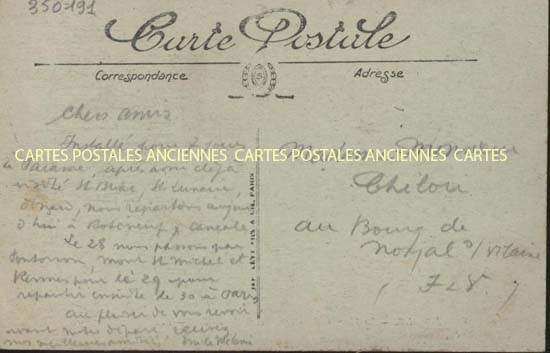 350-191
Carte Postale
Correspondance
Adresse
Chers amis
Installé pour 2 jours
à Paramé, après avoir déjà
visité St Briac, St Lunaire,
Dinard, nous repartons aujour
d'hui à Rothéneuf & Cancale
Le 28 nous passons par
Pontorson, Mont St Michel et
Rennes pour le 29 pour
repartir ensuite le 30 à Paris
au plaisir de vous revoir
avant notre départ recevez
nos meilleures amitiés
CARTES POSTALES ANCIENNES CARTES POSTALES ANCIENNES CARTES
LÉVY FILS & Cie, PARIS
Chilou
au Bourg de
Noyal s/ Vilaine
I & V